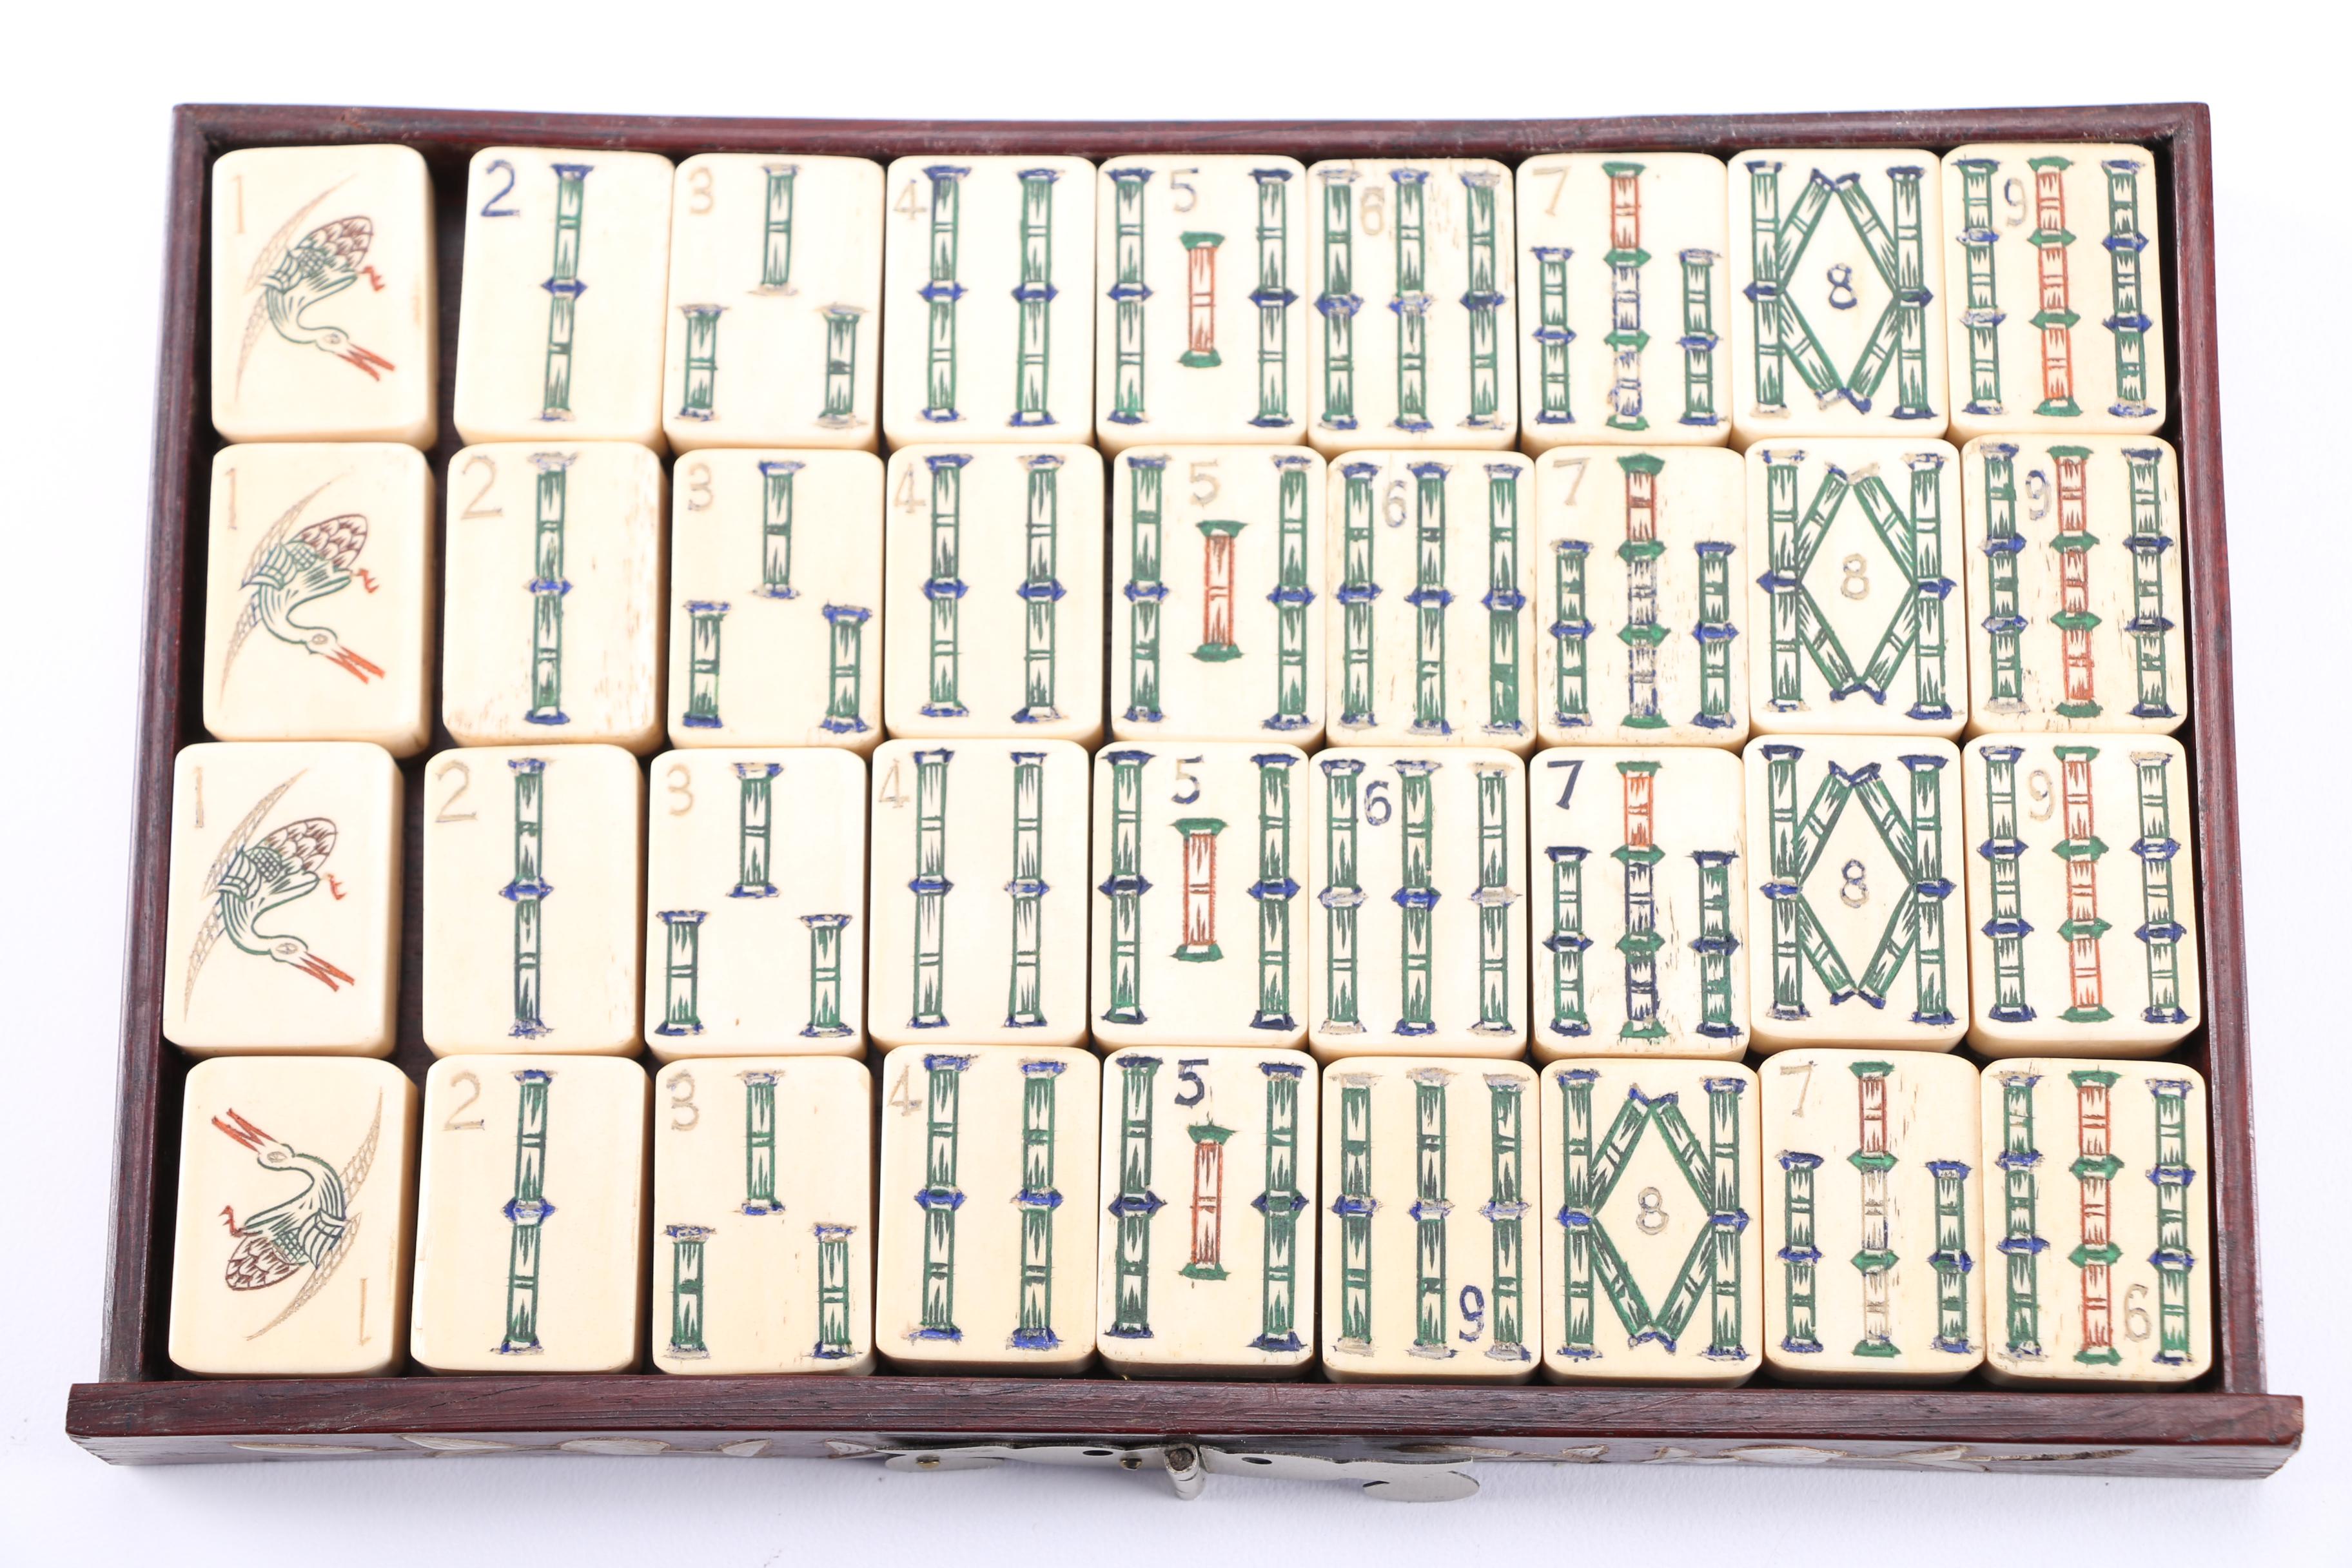 1 2 3 4 5 6 7 8 9
1 2 3 4 5 6 7 8 9
1 2 3 4 5 6 7 8 9
1 2 3 4 5 6 8 7 9